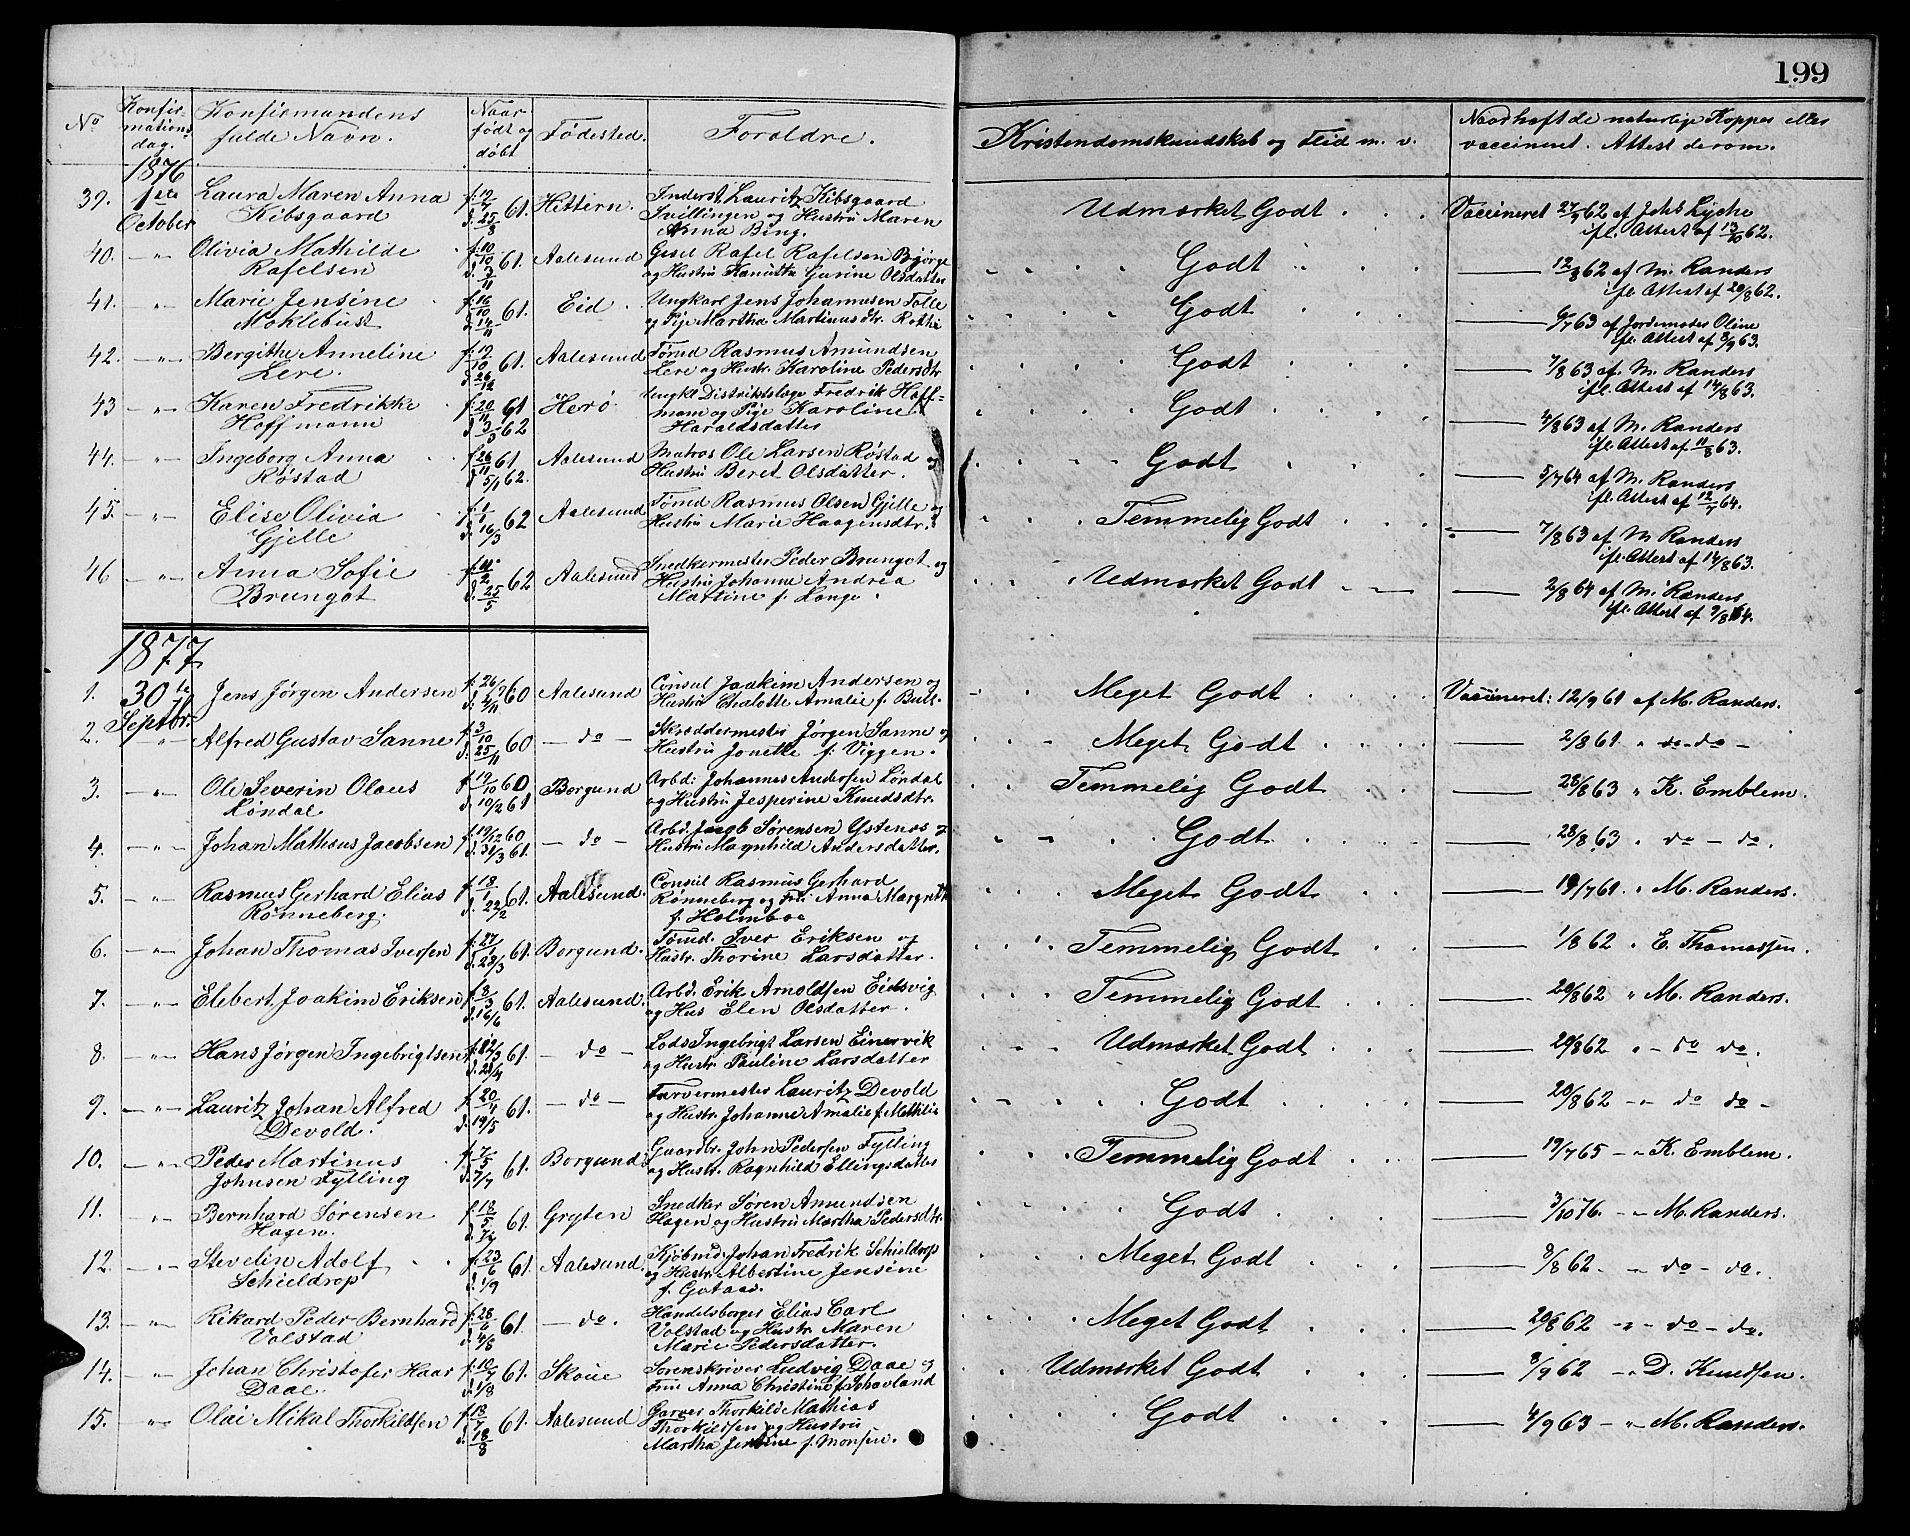 199
No
Konfir-
mations
dag.
Konfirmandens
fulde Navn.
Naar
født og
døbt
Fødested.
Foroldre.
Kristendomskundskab og Flid m. v.
Naar haft de naturlige Kopper eller
vaccineret. Attest derom.
1876
39. 1ste October Laura Maren Anna Kibsgaard f. 19/7 d. 25/8 61. Hittern. Inderst Lauritz Kibsgaard Tvillingen og Hustru Maren Anna Bing. Udmærket Godt Vaccineret 27/9 62 af Johs Lyche ifl. Attest af 13/10 62.
40. —"— Olivia Mathilde Rafelsen f. 10/10 d. 3/11 61. Aalesund Gesel Rafel Rafelsen Bjørge og Hustru Hanitta Gurine Olsdatter Godt 12/8 62 af M. Randers ifl. Attest af 20/8 62.
41. —"— Marie Jensine Moklebust f. 16/10 d. 14/11 61. Eid. Ungkarl Jens Johannesen Tolle og Pige Martha Martinusdtr. Godt 6/7 63 af Jordemoder Oline ifl. Attest af 8/9 63.
42. —"— Bergithe Anneline Lere. f. 19/10 d. 26/12 61. Aalesund Tømd Rasmus Amundsen Lere og Hustr. Karoline Pedersdtr Godt 7/8 63 af M. Randers ifl. Attest af 14/8 63.
43 —"— Karen Fredrikke Hoffmann f. 20/11 61 d. 3/5 62 Herø Ungkl Distriktslæge Fredrik Hoff-mann og Pige Karoline Haraldsdatter Godt 4/8 63 af M. Randers ifl. Attest af 11/8 63.
44. —"— Ingeborg Anna Røstad f. 28/11 61 d. 5/1 62. Aalesund Matros Ole Larsen Røstad og Hustru Beret Olsdatter. Godt 5/7 64 af M. Randers ifl. Attest af 12/7 64.
45. —"— Elise Olivia Gjelle f. 1/1 d. 16/3 62 Aalesund Tømd Rasmus Olsen Gjelle og Hustru Marie Haagensdtr. Temmelig Godt 7/8 63 af M Randers ifl. Attest af 14/8 63.
46 —"— Anna Sofie Brungot f. 11/2 d. 25/5 62 Aalesund Snedkermester Peder Brungot og Hustru Johanne Andrea Martine f. Lange. Udmærket Godt 2/8 64 af M. Randers ifl. Attest af 9/8 64.
1877
1. 30te Septbr. Jens Jørgen Andersen f. 26/7 d. 4/11 60 Aalesund Consul Joakim Andersen og Hustru Chalotte Amalie f. Bull. Meget Godt Vaccineret: 12/9 61 af M. Randers.
2. —"— Alfred Gustav Sanne f. 3/10 d. 25/11 60 — do — Skreddermester Jørgen Sanne og Hustru Jonette f. Viggen. Meget Godt 2/8 61 " do - do -
3. —"— Ole Severin Olaus Løndal f. 19/10 60 d. 10/2 61 Borgund Arbd: Johannes Andersen Løndal og Hustru Jesperine Knudsdtr. Temmelig Godt 28/8 63 " K. Emblem.
4. —"— Johan Matheus Jacobsen f. 19/12 60 d. 31/3 61. — do — Arbd. Jacob Sørensen Ystenes og Hustru Magnhild Andersdatter. Godt 28/8 63 " do - do.
5. —"— Rasmus Gerhard Elias Rønneberg. f. 18/1 d. 22/2 61. Aalesund. Consul Rasmus Gerhard Rønneberg og Fru Anna Margrethe f. Holmboe Meget Godt 19/7 61. " M. Randers.
6. —"— Johan Thomas Iversen f. 27/1 d. 28/3 61. Borgund. Tømd. Iver Eriksen og Hustr. Thorine Larsdatter. Temmelig Godt 1/8 62 " E. Thomassen.
7. —"— Elebert Joakim Eriksen f. 3/3 d. 16/6 61. Aalesund. Arbd. Erik Arnoldsen Eidsvig og Hus Elen Olsdatter. Temmelig Godt 20/8 62 " M. Randers.
8. —"— Hans Jørgen Ingebrigtsen f. 12/3 d. 28/4 61. — do — Lods Ingebrigt Larsen Einervik og Hustr Pauline Larsdatter Udmærket Godt 20/8 62 " - do do.
9. —"— Lauritz Johan Alfred Devold. f. 20/4 d. 19/5 61. — do — Farvermester Lauritz Devold og Hustr. Johanne Amalie f. Godt 20/8 62 -" do do -
10. —"— Peder Martinus Johnsen Fylling f. 7/5 d. 7/7 61. Borgund Gaardbr. John Pedersen Fylling og Hustr. Ragnhild Ellingsdatter Temmelig Godt 19/7 65 -" K. Emblem.
11. —"— Bernhard Sørensen Hagen. f. 18/5 d. 7/7 61. Gryten Snedker Søren Amundsen Hagen og Hustru Martha Pedersdtr. Godt 3/10 76. -" M. Randers.
12. —"— Stevelin Adolf Schieldrop f. 23/6 d. 1/9 61. Aalesund. Kjøbmd. Johan Fredrik Schieldrop og Hustr. Albertine Jensine f. Gotaas. Meget Godt 8/8 62. -" do - do.
13. —"— Rikard Peder Bernhard Volstad f. 28/6 d. 4/8 61. — do. Handelsborger Elias Carl Volstad og Hustr Maren Marie Pedersdatter. Meget Godt 20/8 62 -" do - do.
14. —"— Johan Christofer Haar Daae. f. 10/7 d. 1/8 61. Skoue Sorenskriver Ludvig Daae og Frue Anna Christine f. Schavland Udmærket Godt 8/9 62 -" D. Knudsen.
15. —"— Olai Mikal Thorkildsen f. 13/7 d. 18/8 61. Aalesund Garver Thorkild Mathias Thorkildsen og Hustru Martha Jensine f. Monsen. Godt 4/9 63 -" M. Randers.